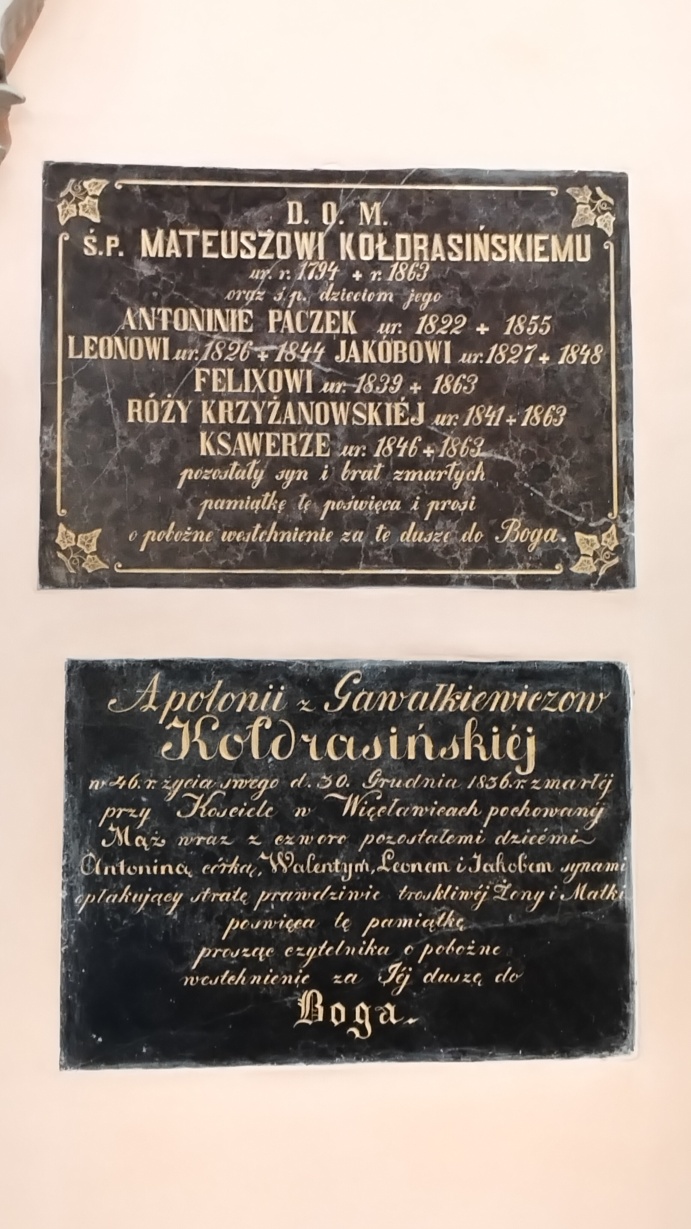 D. O. M.
Ś.P. MATEUSZOWI KOŁDRASIŃSKIEMU
ur. r. 1794 + r. 1863
oraz ś.p. dzieciom jego
ANTONINIE PACZEK ur. 1822 + 1855
LEONOWI ur. 1826 + 1844 JAKÓBOWI ur. 1827 + 1848
FELIXOWI ur. 1839 + 1863
RÓŻY KRZYŻANOWSKIÉJ ur. 1841 + 1863
KSAWERZE ur. 1846 + 1863
pozostały syn i brat zmarłych
pamiątkę tę poświęca i prosi
o pobożne westchnienie za te dusze do Boga.
Apolonii z Gawałkiewiczow
Kołdrasińskiéj
w 46. r. życia swego d. 30. Grudnia 1836. r. zmarłéj
przy Kosciele w Więcławicach pochowanéj
Mąż wraz z czworo pozostałemi dziećmi
Antoniną córką, Walentym, Leonem i Jakobem synami
opłakujący stratę prawdziwie troskliwéj Żony i Matki
poswięca tę pamiątkę
prosząc czytelnika o pobożne
westchnienie za Jéj duszę do
Boga.